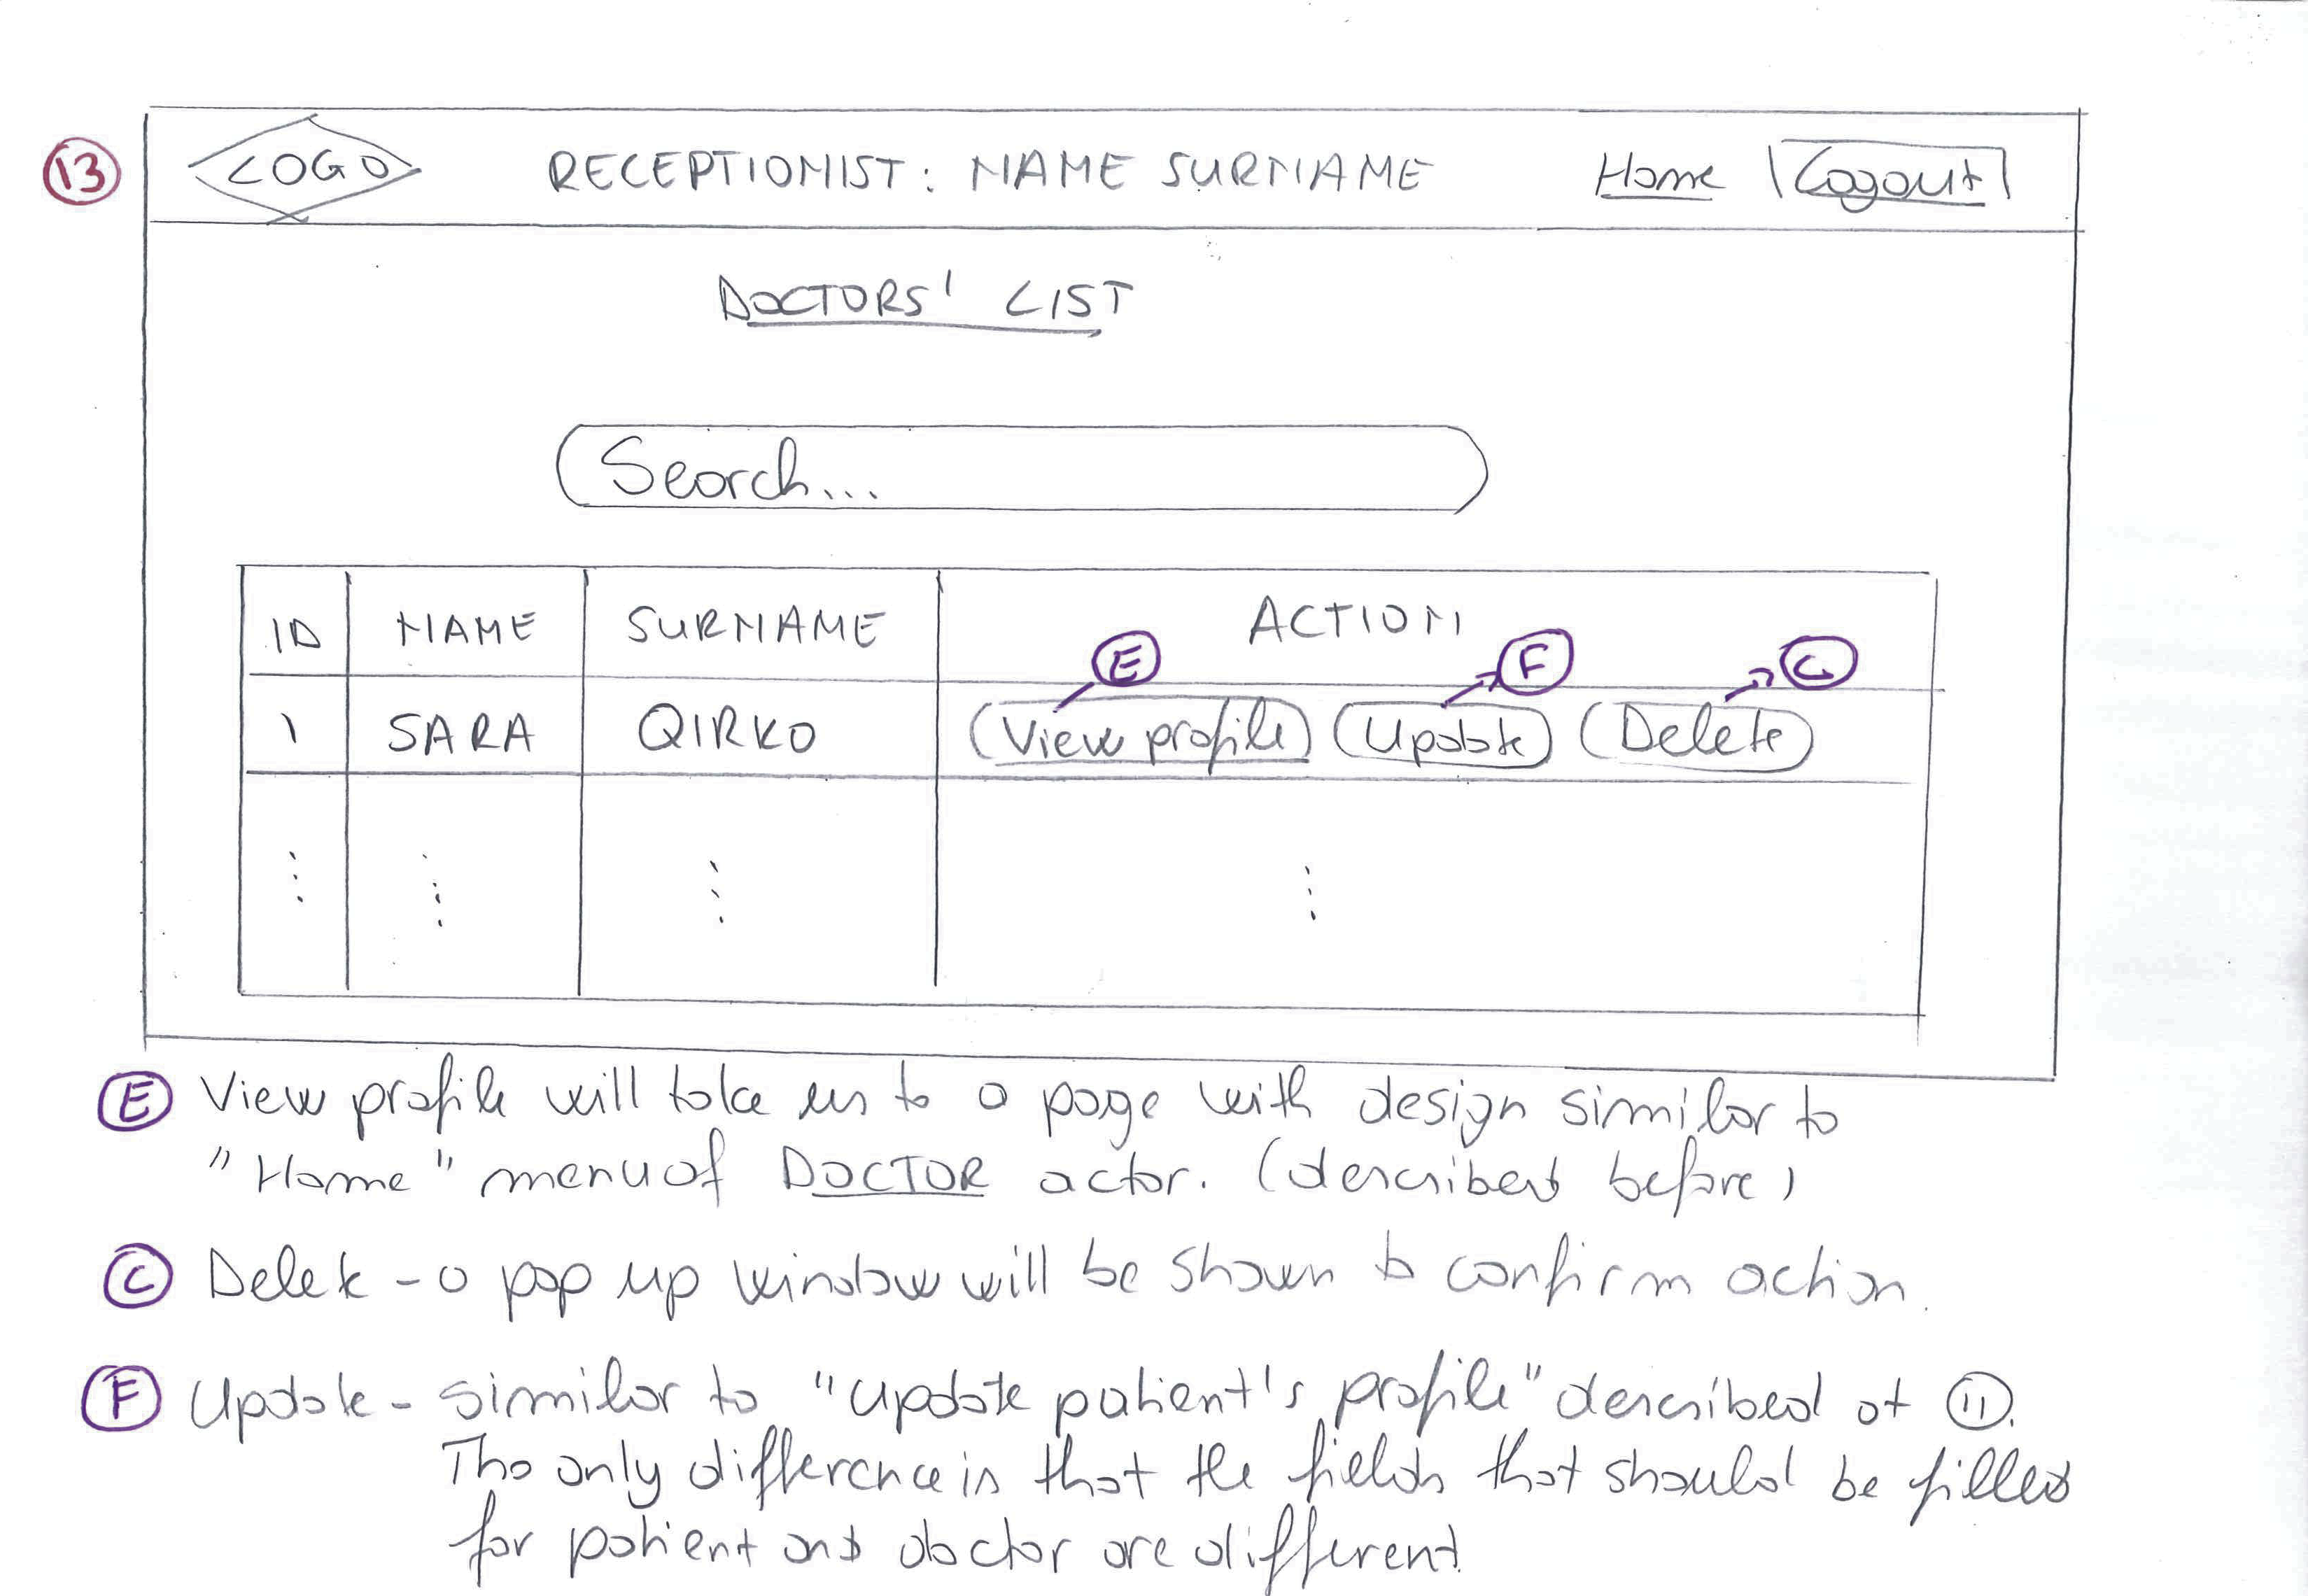 13
LOGO RECEPTIONIST: NAME SURNAME Home Logout
DOCTORS' LIST
Search...
ID NAME SURNAME ACTION
E F C
1 SARA QIRKO View profile Update Delete
E View profile will take us to a page with design similar to
"Home" menu of DOCTOR actor. (described before)
C Delete - a pop up window will be shown to confirm action.
F Update - similar to "update patient's profile" described at 11.
The only difference is that the fields that should be filled
for patient and doctor are different.